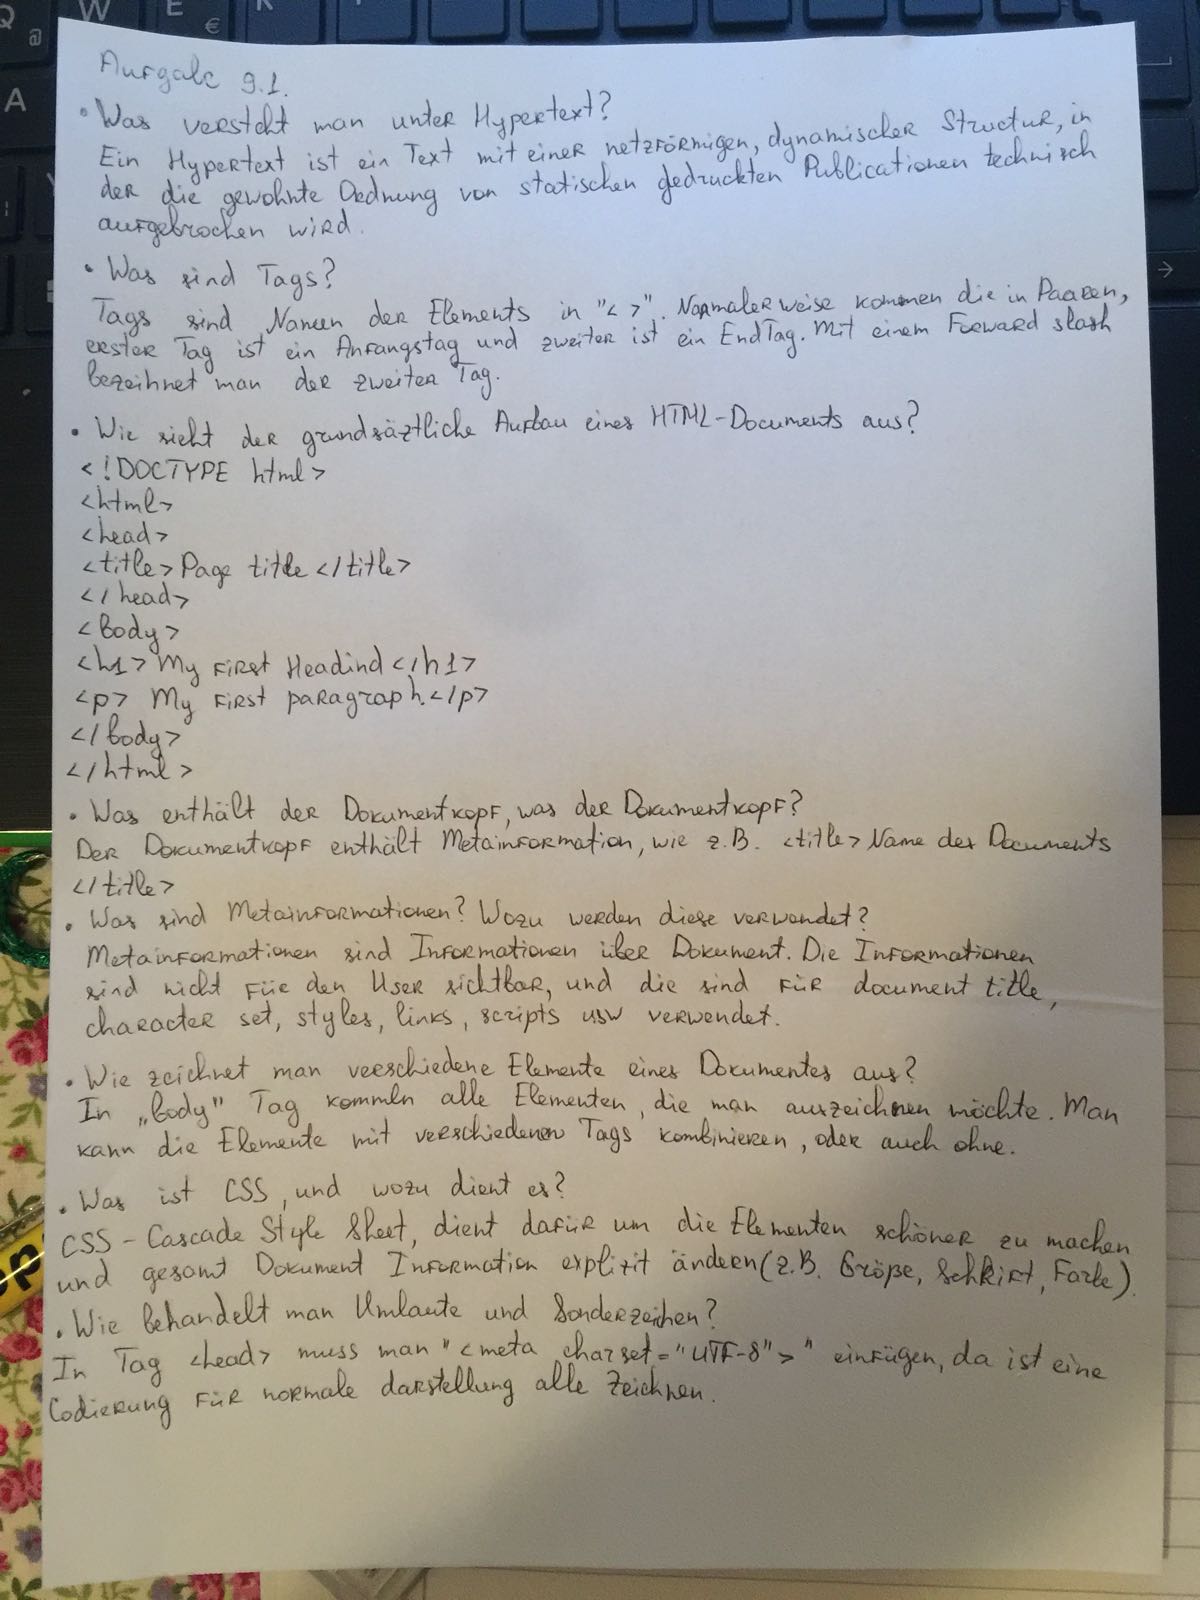 Q
W
E
R
@
€
A
Aufgabe 9.1.
• Was versteht man unter Hypertext?
Ein Hypertext ist ein Text mit einer netzförmigen, dynamischer Structur, in
der die gewohnte Ordnung von statischen gedruckten Publicationen technisch
aufgebrochen wird.
• Was sind Tags?
Tags sind Namen der Elements in "< >". Normalerweise kommen die in Paaren,
erster Tag ist ein Anfangstag und zweiter ist ein EndTag. Mit einem Forward slash
bezeihnet man der zweiter Tag.
• Wie sieht der grundsäztliche Aufbau eines HTML-Documents aus?
<!DOCTYPE html>
<html>
<head>
<title> Page title </title>
</head>
<body>
<h1> My first Headind </h1>
<p> My first paragraph. </p>
</body>
</html>
• Was enthält der Dokumentkopf, was der Dokumentkopf?
Der Dokumentkopf enthält Metainformation, wie z.B. <title> Name des Documents
</title>
• Was sind Metainformationen? Wozu werden diese verwendet?
Metainformationen sind Informationen über Dokument. Die Informationen
sind nicht für den User sichtbar, und die sind für document title,
character set, styles, links, scripts usw verwendet.
• Wie zeichnet man verschiedene Elemente eines Dokumentes aus?
In „body" Tag kommen alle Elementen, die man auszeichnen möchte. Man
kann die Elemente mit verschiedenen Tags kombinieren, oder auch ohne.
• Was ist CSS, und wozu dient es?
CSS - Cascade Style Sheet, dient dafür um die Elementen schöner zu machen
und gesamt Dokument Information explizit ändern (z.B. Größe, Schkift, Farbe).
• Wie behandelt man Umlaute und Sonderzeihen?
In Tag <head> muss man "<meta charset="UTF-8">" einfügen, da ist eine
Codierung für normale darstellung alle Zeichnen.